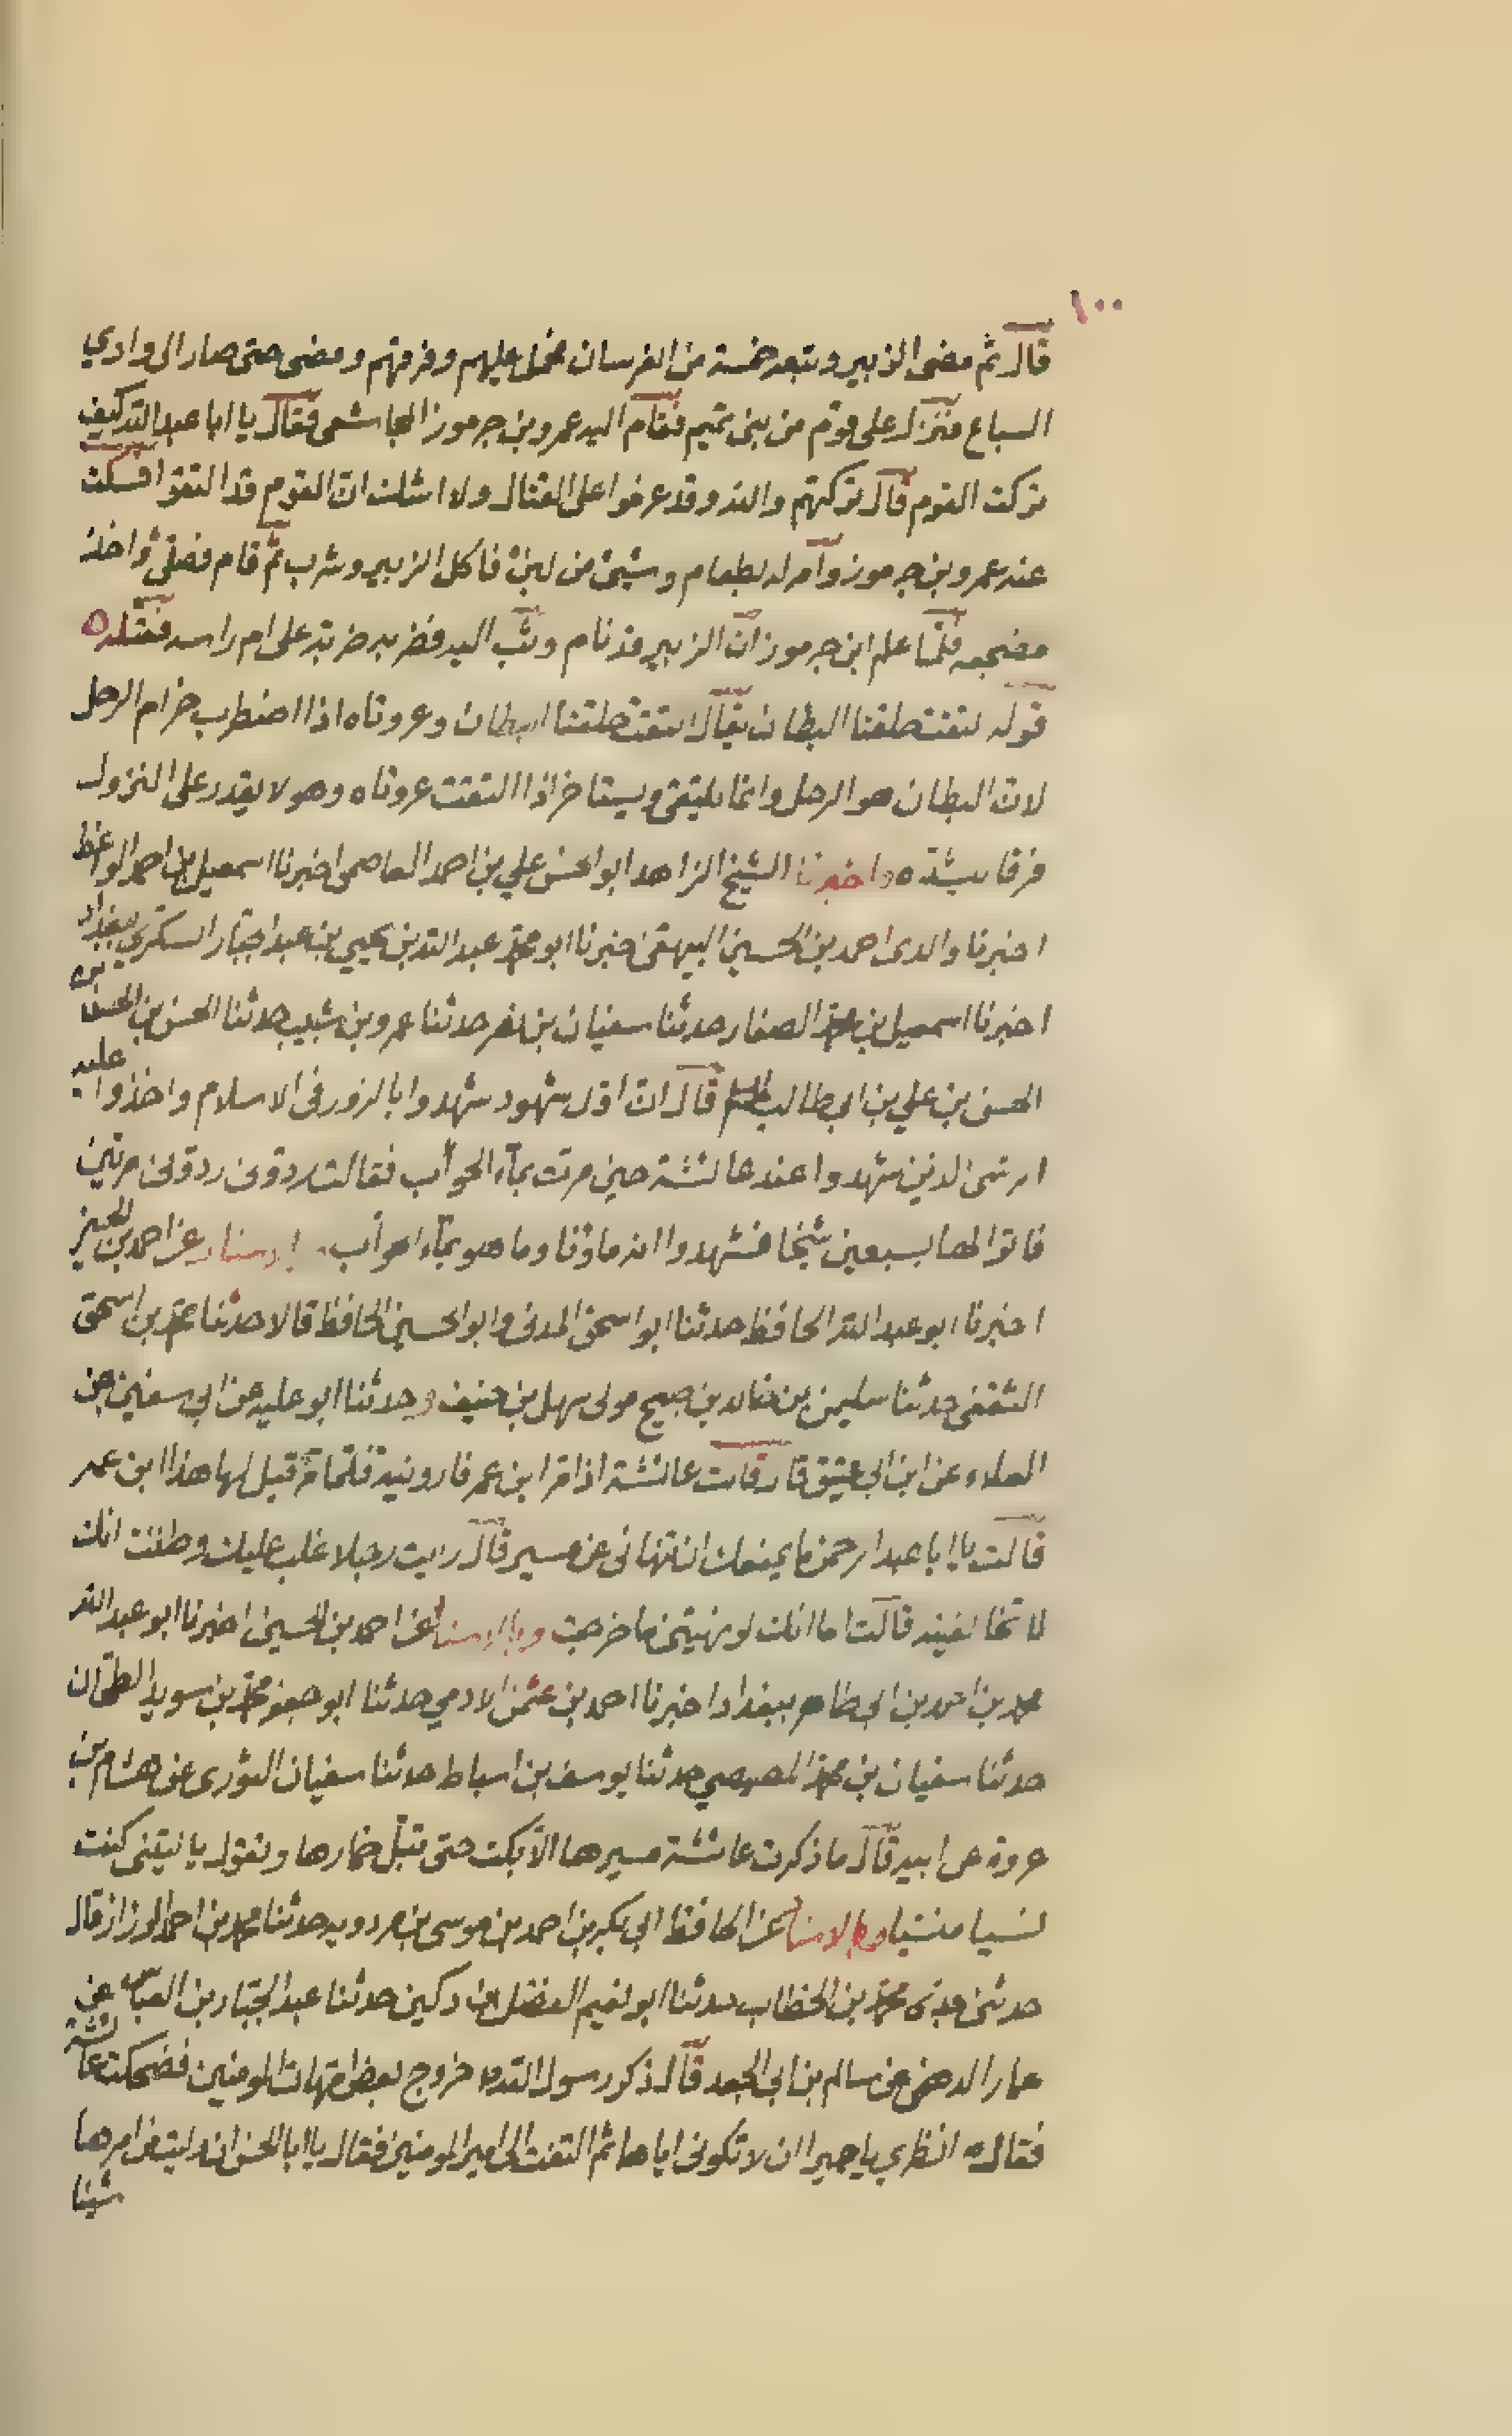 ١٠٠
قال ثم مضى الزبير وتبعه خمسة من الفرسان فحمل عليهم وفرقهم ومضى حتى صار الى وادي
السباع فنزل على قوم من بني تميم فقام اليه عمرو بن جرموز المجاشعي فقال يا ابا عبد الله كيف
تركت القوم قال تركتهم والله وقد عزموا على القتال ولا اشك ان القوم قد التقوا فسكت
عنه عمرو بن جرموز وامر له بطعام وشيئ من لبن فاكل الزبير وشرب ثم قام فصلى واخذ
مضجعه فلما علم ابن جرموز ان الزبير قد نام وثب اليه فضربه ضربة على ام راسه فقتله ه
قوله التقت حلقتا البطان يقال التقت حلقتا البطان وعروتاه اذا اضطرب حزام الرحل
لان البطان هو الرحل وانما يلتقى ويستاخر اذا التقت عروتاه وهو لا يقدر على النزول
فرقا بشده واخبرنا الشيخ الزاهد ابو الحسن علي بن احمد العاصمى اخبرنا اسمعيل بن احمد الواعظ
اخبرنا والدى احمد بن الحسين البيهقى اخبرنا ابو محمد عبد الله بن يحيى بن عبد الجبار السكري ببغداد
اخبرنا اسمعيل بن محمد الصفار حدثنا سفيان بن نصر حدثنا عمرو بن شبيب حدثنا الحسن بن الحسن بن
الحسن بن علي بن ابى طالب قال ان اول شهود شهدوا بالزور فى الاسلام واخذوا عليه
الرشى الذين شهدوا عند عائشة حين مرت بماء الحوأب فقالت ردونى ردونى مرتين
فاتوا لها بسبعين شيخا فشهدوا انه ماؤنا وما هو بماء الحوأب اسناد عن احمد بن الحسين
اخبرنا ابو عبد الله الحافظ حدثنا ابو اسحق المدنى وابو الحسين الحافظ قالا حدثنا محمد بن اسحق
الثقفى حدثنا سليمن بن خالد بن صبيح مولى سهل بن حنيف وحدثنا ابو عليه عن ابى سفين بن
العلاء عن ابن ابى عتيق قال قالت عائشة اذا مر ابن عمر فارونيه فلما مر قيل لها هذا ابن عمر
قالت يا ابا عبد الرحمن ما يمنعك ان تنهانى عن مسير قال رايت رجلا غلب عليك وظننت انك
لا تخالفينه قالت اما انك لو نهيتنى ما خرجت وبالاسناد عن احمد بن الحسين اخبرنا ابو عبد الله
محمد بن احمد بن ابى طاهر ببغداد اخبرنا احمد بن عثمن الادمي حدثنا ابو جعفر محمد بن سويد الطحان
حدثنا سفيان بن محمد المصيصي حدثنا يوسف بن اسباط حدثنا سفيان الثورى عن هشام بن
عروة عن ابيه قال ما ذكرت عائشة مسيرها الا بكت حتى تبل خمارها وتقول يا ليتنى كنت
نسيا منسيا وبالاسناد عن الحافظ ابى بكر بن احمد بن موسى بن مردويه حدثنا محمد بن احمد الوزان قال
حدثنى جدى محمد بن الخطاب حدثنا ابو نعيم الفضل بن دكين حدثنا عبد الجبار بن العباس عن
عمار الدهنى عن سالم بن ابى الجعد قال ذكر رسول الله ص خروج بعض امهات المومنين فضحكت عائشة
فقال ه انظري يا حميرا ان لا تكونى اياها ثم التفت الى امير المومنين فقال يا ابا الحسن ان وليت من امرها
شيئا